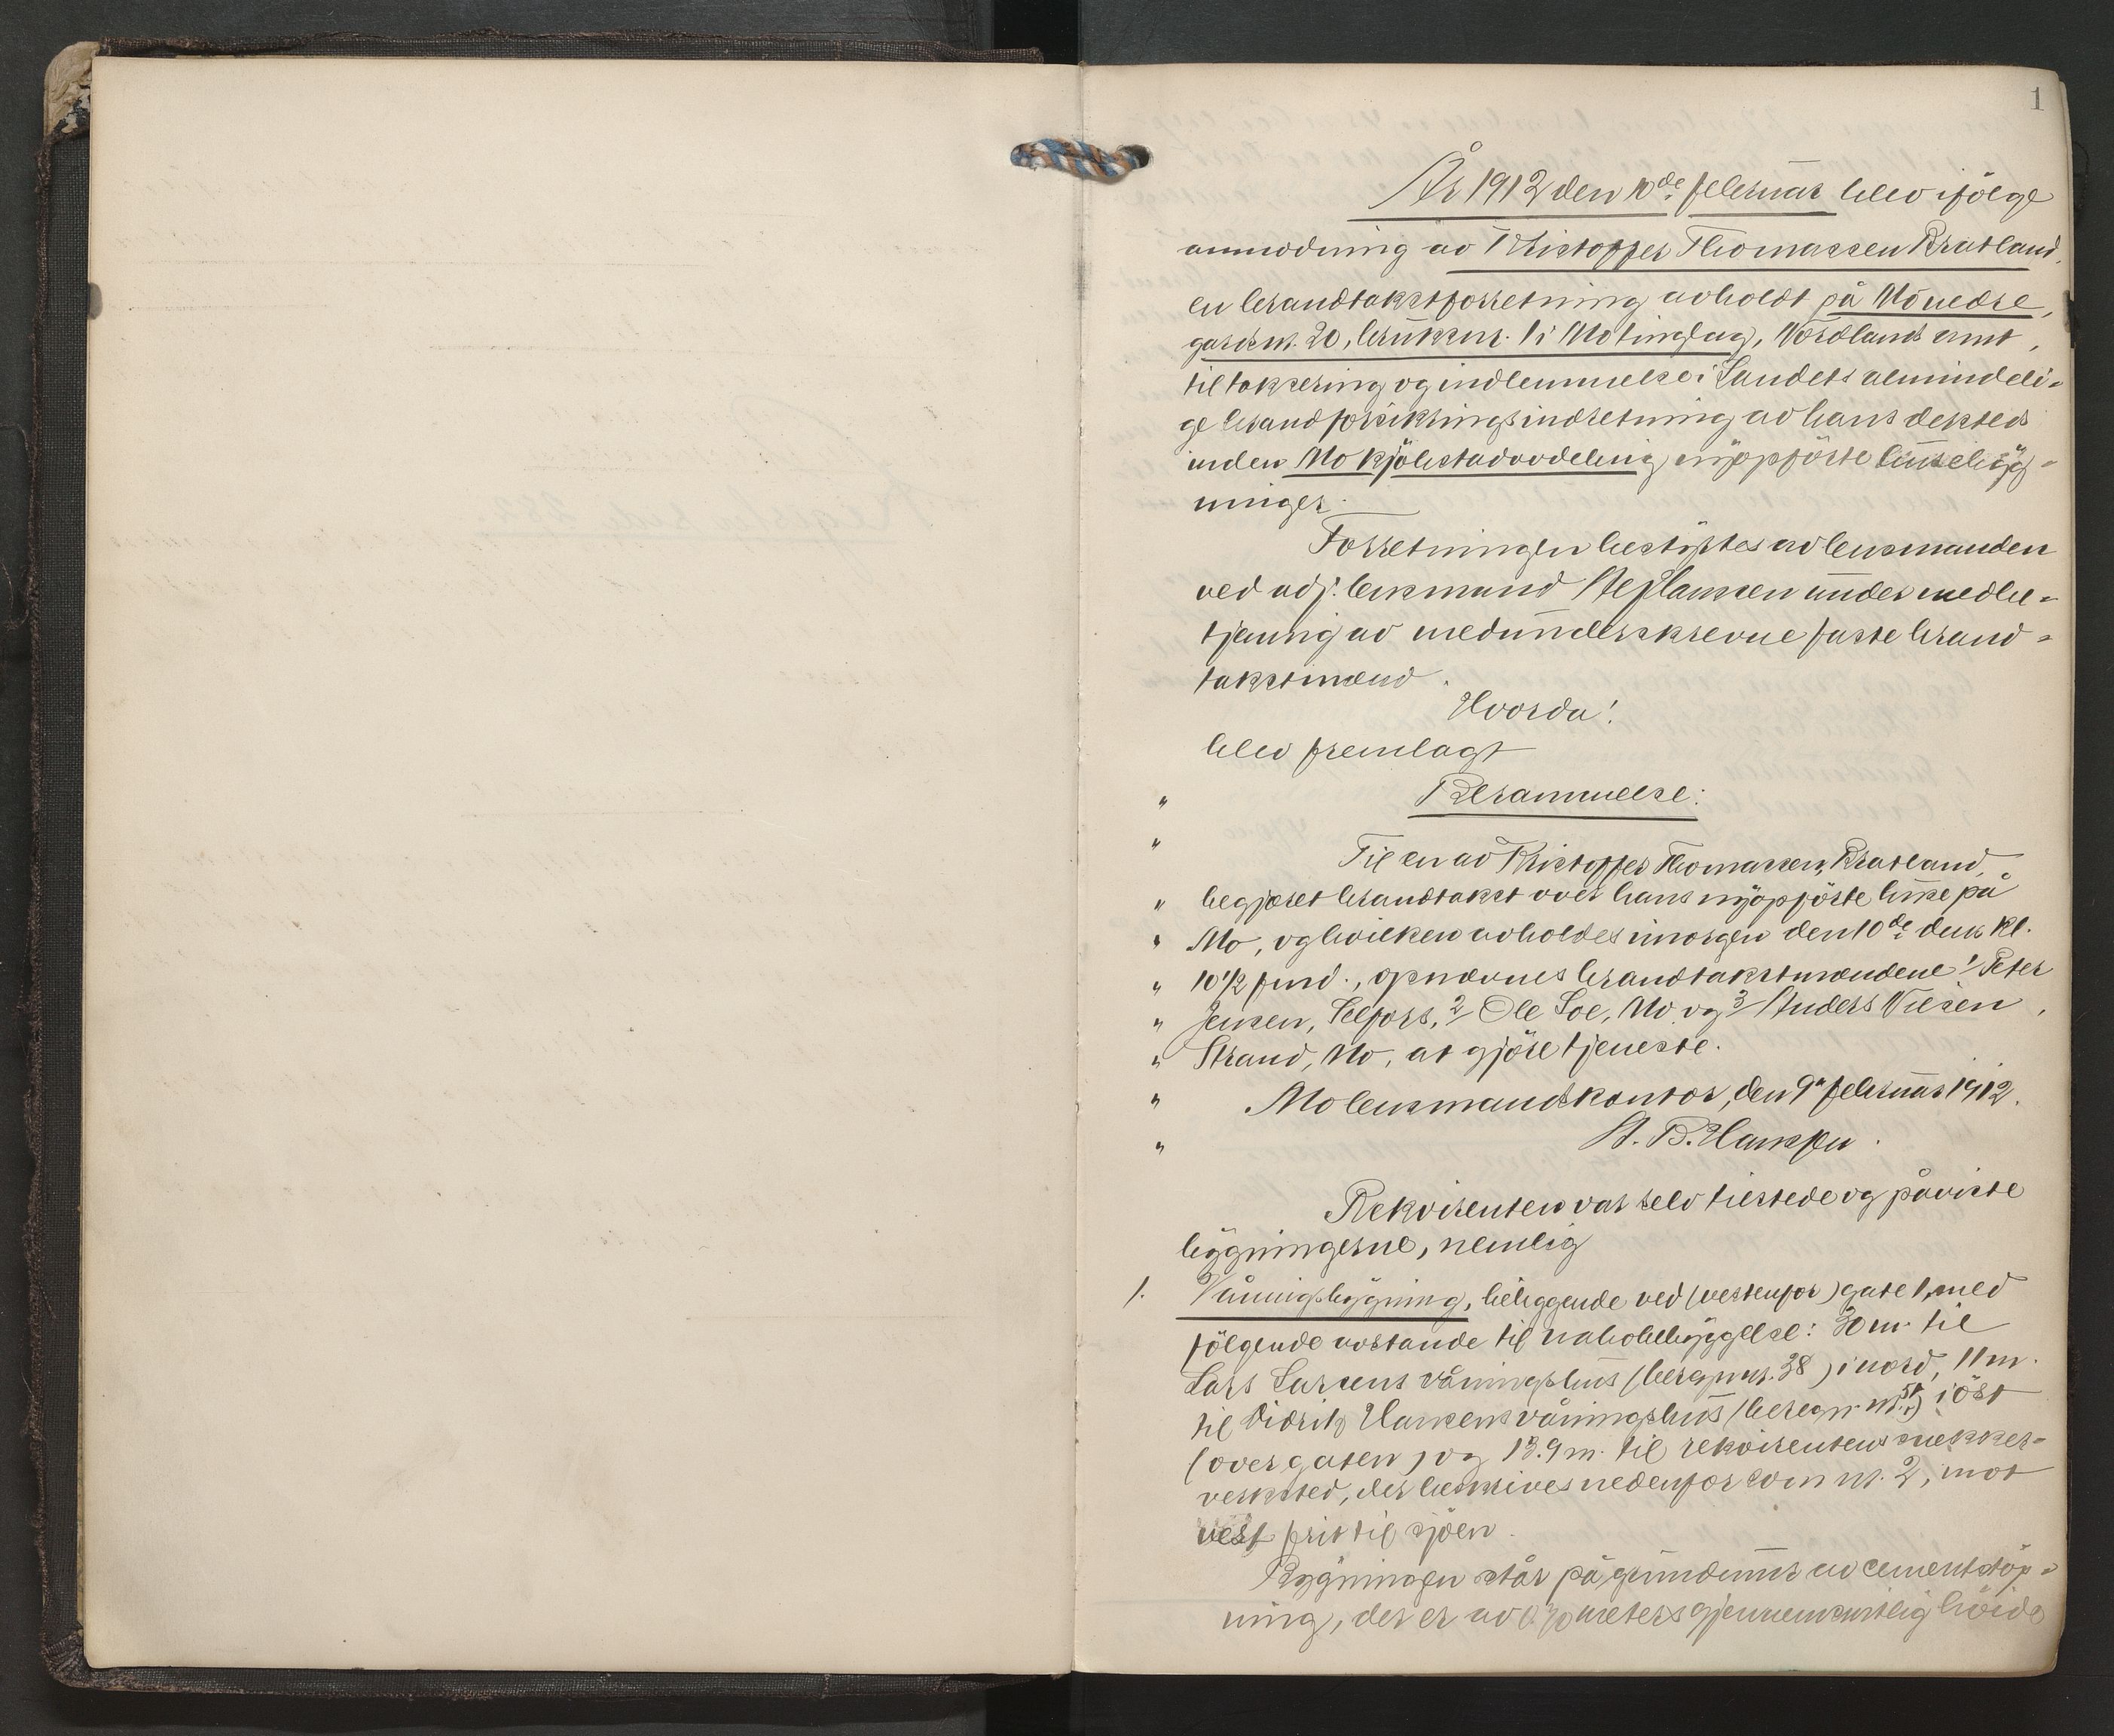 1
År 1912 den 10de februar blev ifölge
anmodning av Kristoffer Thomassen Bratland,
en brandtakstforretning avholdt på Mo nedre,
gardsnr. 20, bruksnr. 1 i Mo tinglag, Nordlands amt,
til taksering og indlemmelse i Landets almindeli-
ge brandforsikringsindretning av hans dersteds
inden Mo kjöbstadavdeling nyopförte husebygg-
ninger.
Forretningen bestyrtes av lensmanden
ved adj. lensmand Hanssen under medbe-
tjening av medunderskrevne faste brand-
takstmænd.
Hvorda!
blev fremlagt
" Berammelse:
"
Til en av Kristoffer Thomassen, Bratland,
" begjæret brandtakst over hans nyopförte huse på
" Mo, og hvilken avholdes imorgen den 10de dens kl.
" 10 1/2 fmd., opnævnes brandtakstmændene 1/ Peter
" Jensen, Selfors, 2/ Ole Loe, Mo og 3/ Anders Nilsen,
" Strand, Mo, at gjöre tjeneste.
" Mo lensmandskontor, den 9" februar 1912.
" A. B. Hanssen.
Rekvirenten var selv tilstede og påviste
bygningerne, nemlig
1. Våningsbygning, beliggende ved (vestenfor) gate 1, med
fölgende avstande til nabobebyggelse: 30 m. til
Lars Larsens våningshus (bergnr. 38) i nord, 11 m.
til Didrik Hansens våningshus (beregn. nr. 51) i öst
(over gaten) og 13.9 m. til rekvirentens snekker-
verksted, der beskrives nedenfor som nr. 2, mot
vest frit til sjöen.
Bygningen står på grundmur av cementstöp-
ning, der er av meters gjennemsnitlig höide